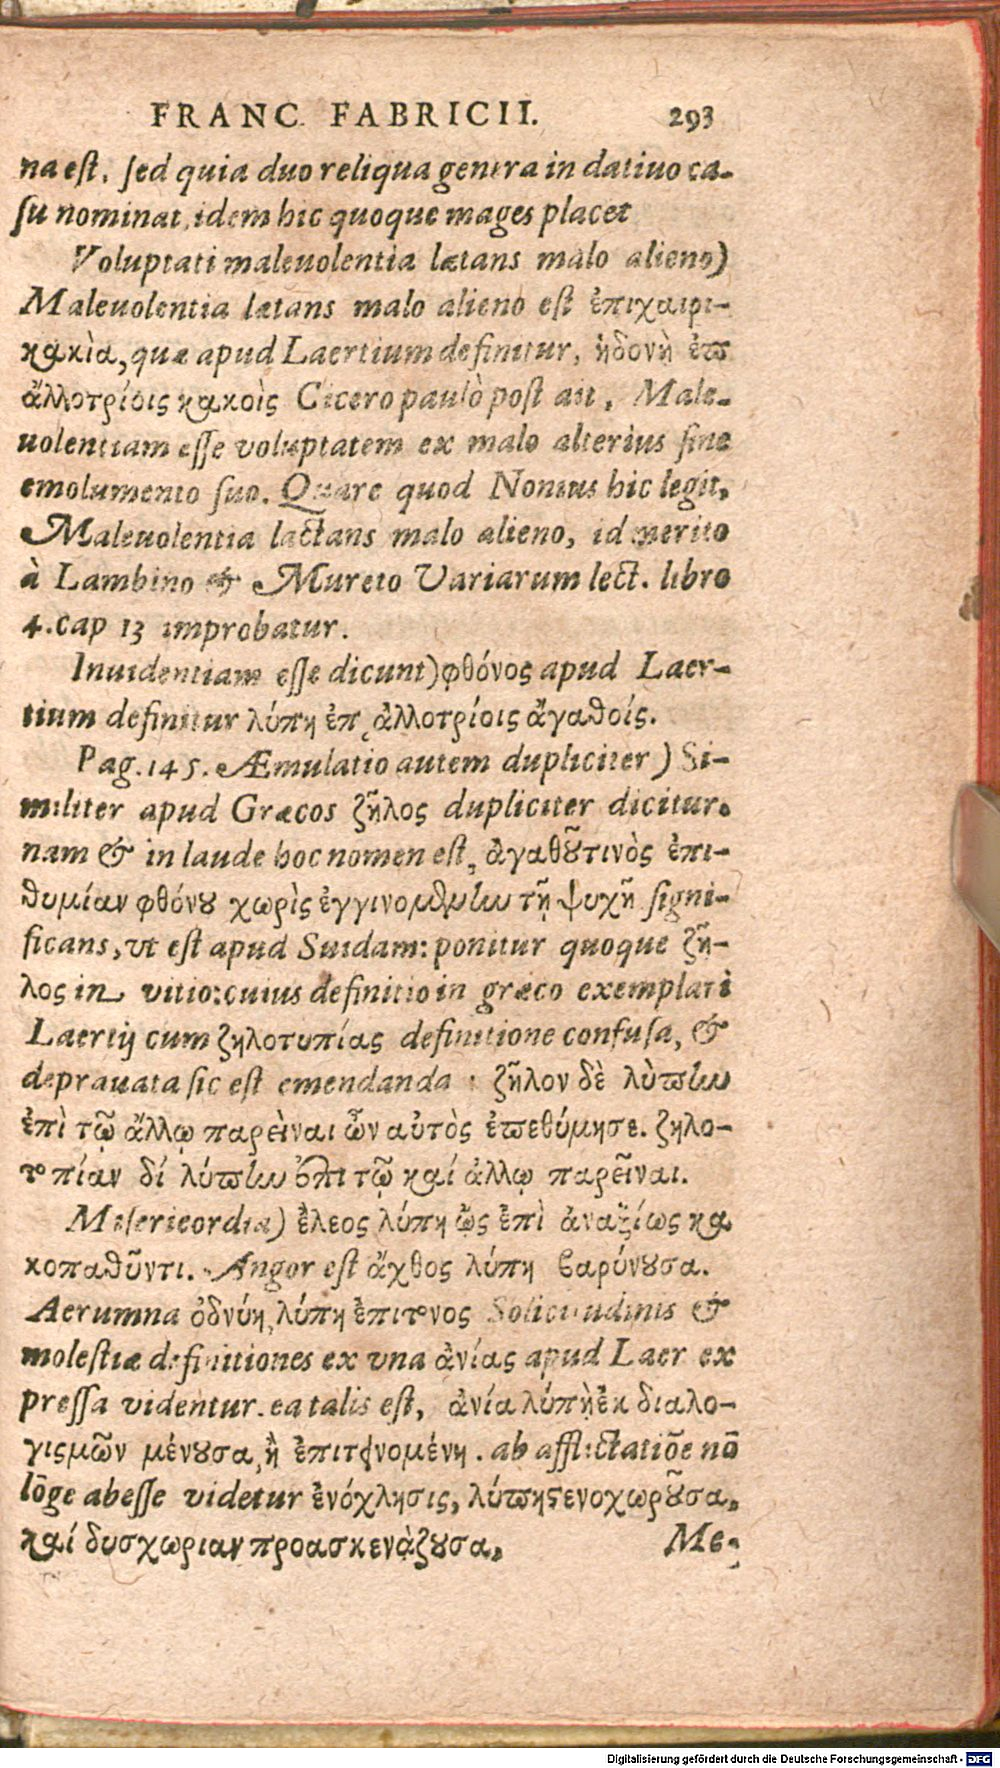 FRANC. FABRICII. 293
na est. sed quia duo reliqua genera in datiuo ca-
su nominat, idem hic quoque mages placet
Voluptati maleuolentia lætans malo alieno)
Maleuolentia lætans malo alieno est ἐπιχαιρι-
κακὶα, quæ apud Laertium definitur, ἡδονὴ ἐπ
ἄλλοτρίοις κακοὶς Cicero paulò post ait, Male-
uolentiam esse voluptatem ex malo alterius sine
emolumento suo. Quare quod Nonius hic legit,
Maleuolentia lactans malo alieno, id merito
à Lambino & Mureto Variarum lect. libro
4. cap 13 improbatur.
Inuidentiam esse dicunt) φθόνος apud Laer-
tium definitur λύπη ἐπ ἀλλοτρίοις ἄγαθοίς.
Pag. 145. Æmulatio autem dupliciter) Si-
militer apud Græcos ζῆλος dupliciter dicitur.
nam & in laude hoc nomen est, ἀγαθοῦτινὸς ἐπι-
θυμίαν φθόνου χωρὶς ἐγγινομένην τῇ ψυχῇ signi-
ficans, vt est apud Suidam: ponitur quoque ζῆ-
λος in vitio: cuius definitio in græco exemplari
Laertij cum ζηλοτυπίας definitione confusa, &
deprauata sic est emendanda : ζῆλον δὲ λὺπην
ἐπὶ τῷ ἄλλῳ παρεῖναι ὧν αὐτὸς ἐπεθύμησε. ζηλο-
τοπίαν δί λύπην ἐπι τῷ καί ἀλλῳ παρεῖναι.
Misericordia) ἔλεος λύπη ὡς ἐπὶ ἀναξίως κα
κοπαθοῦντι. Angor est ἄχθος λύπη βαρύνουσα.
Aerumna ὀδνύη, λύπη ἐπιτονος Solicitudinis &
molestiæ definitiones ex vna ἀνίας apud Laer ex
pressa videntur. ea talis est, ἀνία λύπὴ ἐκ διαλο-
γισμῶν μένουσα, ἢ ἐπιτεινομένη. ab afflictatiōe nō
lōge abesse videtur ἐνόχλησις, λύπηστενοχωροῦσα,
καί δυσχωριαν προασκενάζουσα. Me-
Digitalisierung gefördert durch die Deutsche Forschungsgemeinschaft - DFG